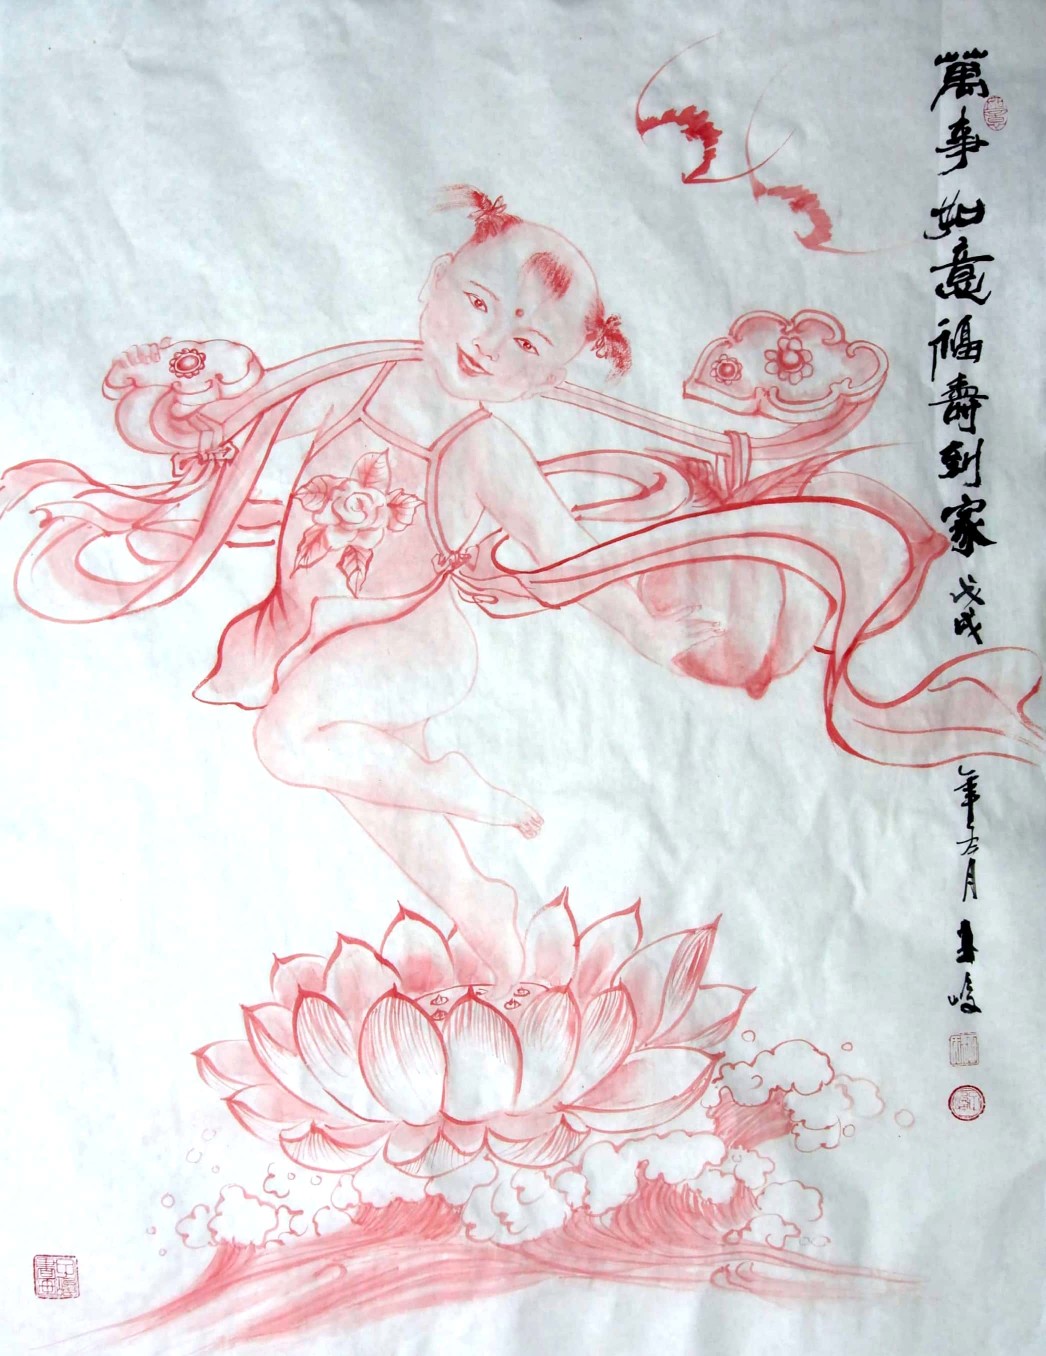 萬事如意福壽到家戊戌年月峻